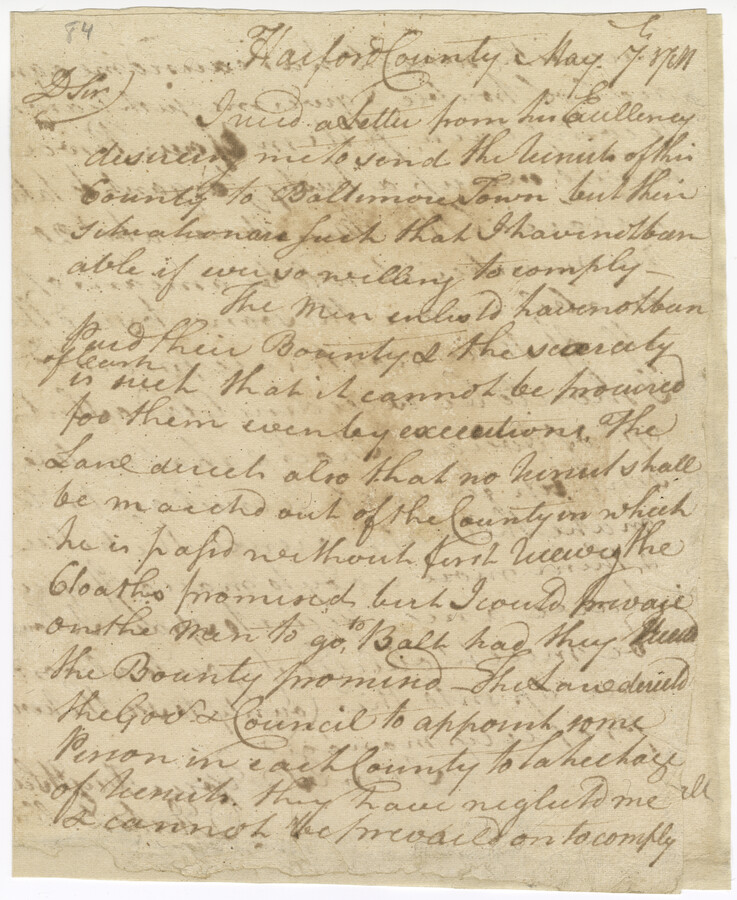 84
Harford County May 7th 1781
D Sir
I recd a Letter from his Excellency
desireing me to send the Recruits of this
County to Baltimore Town but their
situation are such that I have not been
able if ever so willing to comply —
The Men enlistd have not been
Paid their Bounty & the scearcity
of Cash
is such that it cannot be procured
for them even by executions. The
Law directs also that no recruit shall
be marchd out of the County in which
he is passd without first receivg the
Cloaths promised but I could prevaie
on the Men to go to Balt had they recd
the Bounty promisd — The Law directd
the Govr & Council to appoint some
Person in each County to take charge
of recruits. they have neglectd me
& cannot be prevaild on to comply